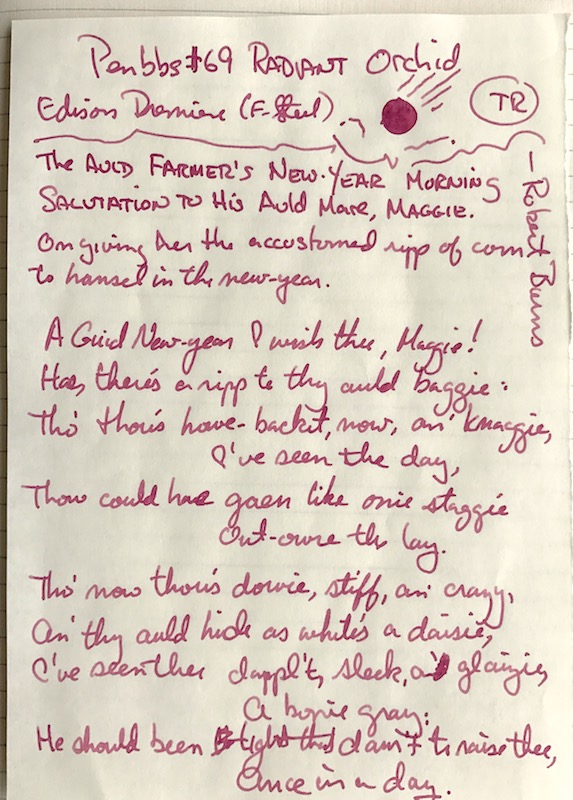 Penbbs #69 RADIANT Orchid
Edison Premiere (F-Steel)
TR
The AULD FARMER'S NEW-YEAR MORNING
SALUTATION TO His Auld Mare, MAGGIE.
— Robert Burns
On giving her the accustomed ripp of corn
to hansel in the new-year.
A Guid New-year I wish thee, Maggie!
Hae, there's a ripp to thy auld baggie:
Tho' thou's howe-backit, now, an' knaggie,
I've seen the day,
Thou could hae gaen like onie staggie
Out-owre the lay.
Tho' now thou's dowie, stiff, an' crazy,
An' thy auld hide as white's a daisie,
I've seen thee dappl't, sleek, an' glaizie,
A bonie gray:
He should been tight that daur't to raise thee,
Ance in a day.